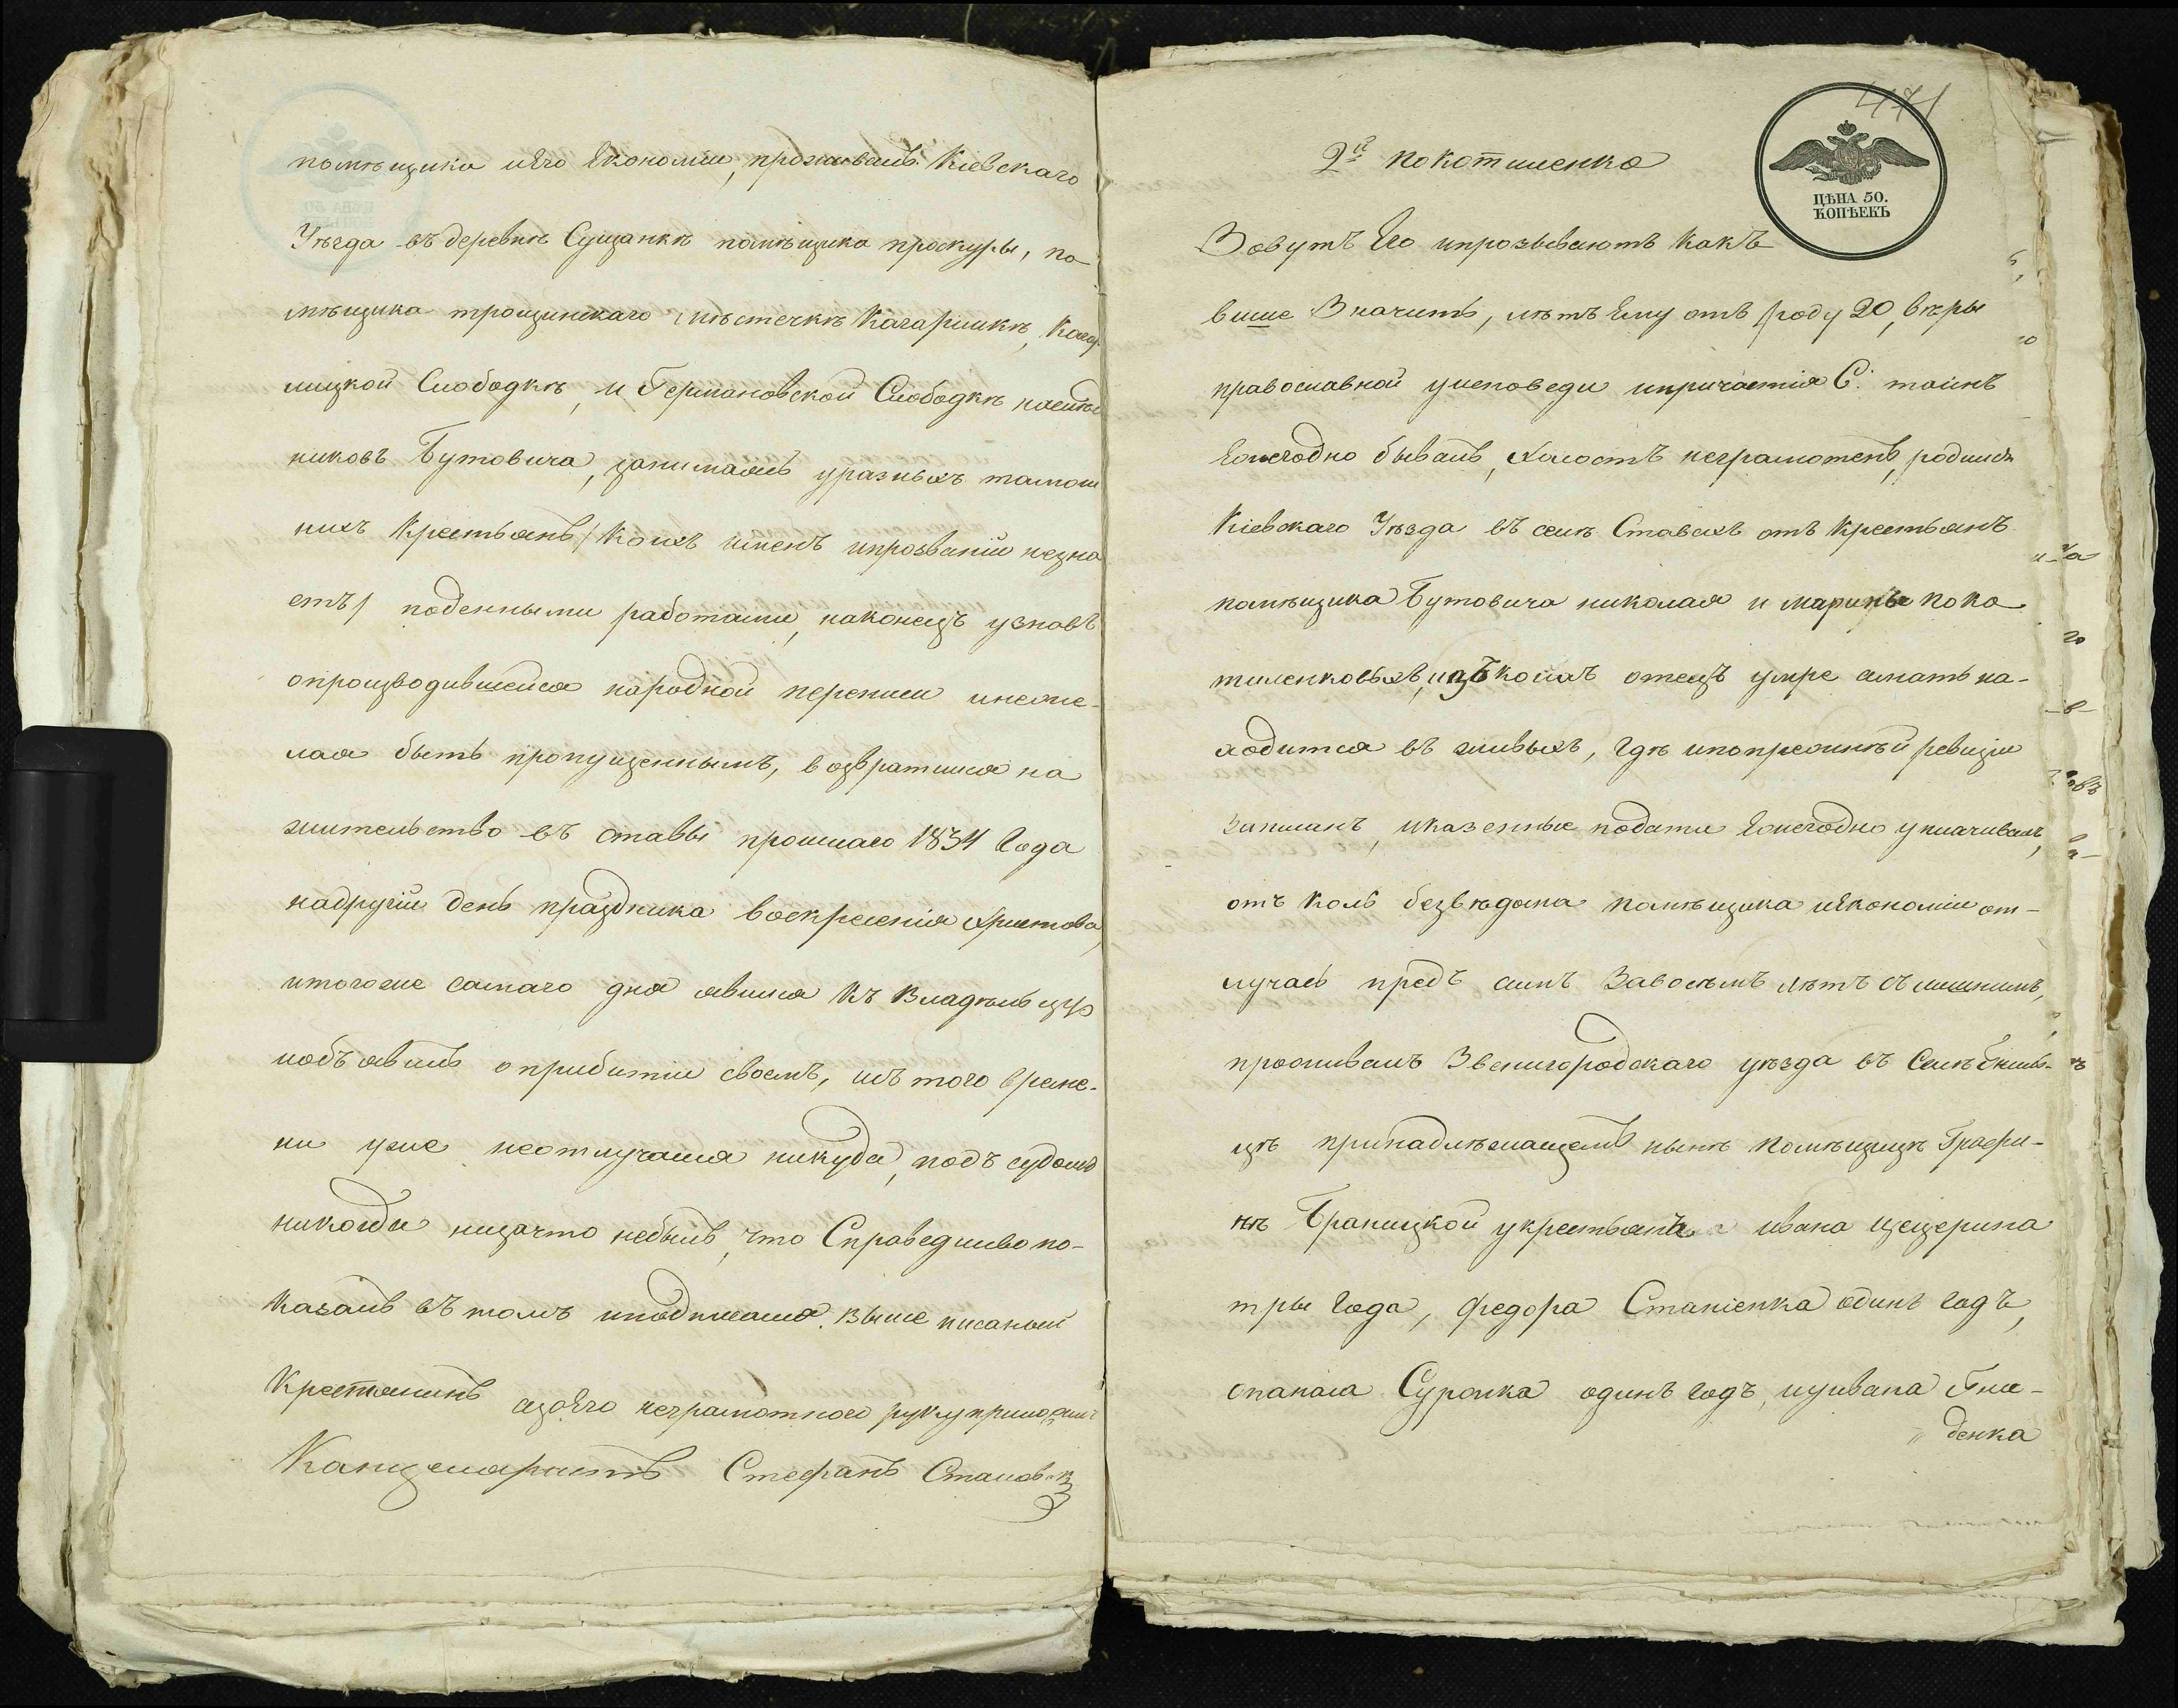 помѣщика иЕго Економіи, проживалъ Кіевскаго
Уѣзда въ деревнѣ Сущанкѣ помѣщика проскуры, по
мѣщика трощинскаго мѣстечкѣ Кагарликѣ, Кагар
лицкой Слободкѣ, и Германовской Слободкѣ наслѣд
никовъ Бутовича, занимаясь уразныхъ тамош
нихъ Крестьянъ /Коихъ именъ ипрозваній незна
етъ/ поденными работами, наконецъ узнавъ
опроизводившейся народной переписи инеже-
лая быть пропущеннымъ, возвратился на
жительство въ ставы прошлаго 1834 Года
надругій день праздника воскресенія Христова,
итогоже самаго дня явился Къ Владѣльцу
иобъявилъ оприбытіи своемъ, исъ того време-
ни уже неотлучался никуда, подъ судомъ
никогда низачто небылъ, что Справедливо по-
Казалъ въ томъ иподписался. Выше писаный
Крестьянинъ азаЕго неграмотного руку приложилъ
Канцеляристъ Стефанъ
471
ЦѢНА 50.
КОПѢЕКЪ
2й покотиленко
Зовутъ Его ипрозываютъ Какъ
выше Значитъ, лѣтъ Ему отъ роду 20, вѣры
православной уисповеди ипричастія С: таинъ
Ежегодно бывалъ, Холостъ неграмотенъ, родился
Кіевскаго Уѣзда въ селѣ Ставахъ отъ Крестьянъ
помѣщика Бутовича николая и марины поко
тиленковыхъ, изъ коихъ отецъ умре амать на-
ходится въ живыхъ, гдѣ ипопрежнѣй ревизіи
Записанъ, иказенные подати Ежегодно уплачивалъ,
отъ Коль безвѣдома помѣщика иЕкономіи от-
лучась предъ симъ Завосѣмъ лѣтъ съ лишнимъ,
проживалъ Звенигородскаго уѣзда въ Селѣ Гнил-
цѣ принадлѣжащемъ нынѣ помѣщицѣ Графи-
нѣ Браницкой укрестьянъ ивана щещерина
три Года, федора Станіенка одинъ годъ,
опанаса Сурожка одинъ годъ, иуивана Гне-
денка